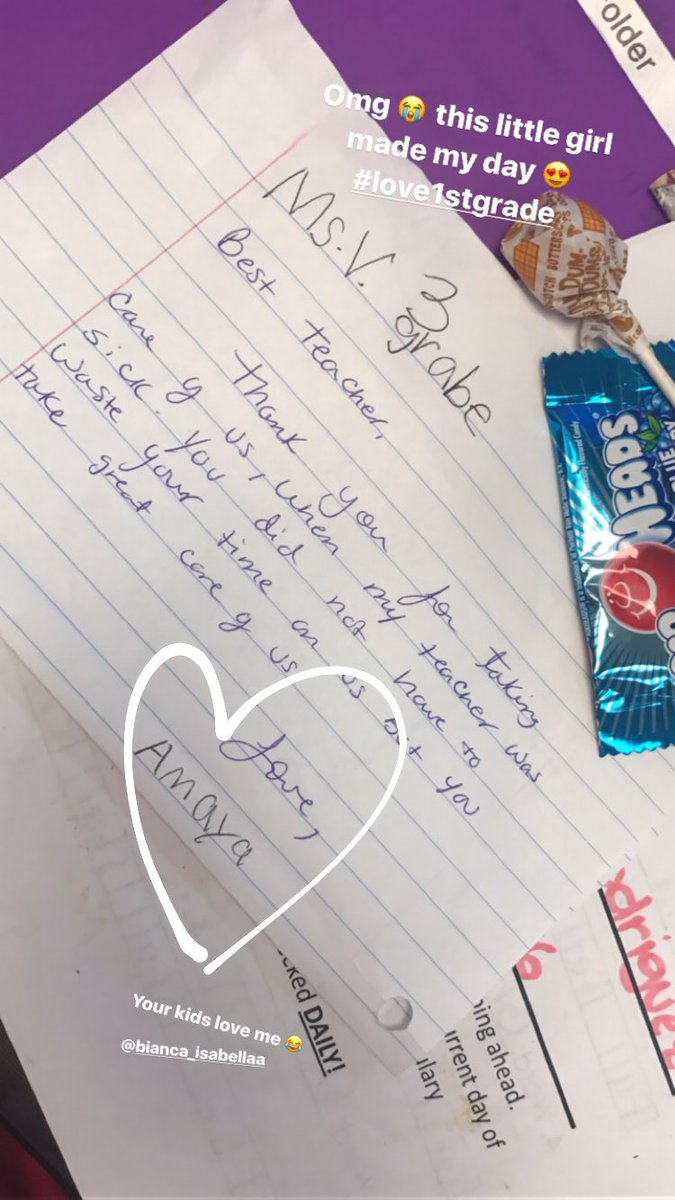 older
Omg 😭 this little girl
made my day 😍
#love1stgrade
Ms. V. 3
grabe
Best teacher,
thank you for taking
care of us, when my teacher was
sick. You did not have to
waste your time on us but you
take great care of us
Love,
Anaya
SCOTCH BUTTERSC
DUM
DUMS
HEADS
BLUE
Your kids love me 😂
@bianca_isabellaa
cked DAILY!
ing ahead.
urrent day of
ulary
6